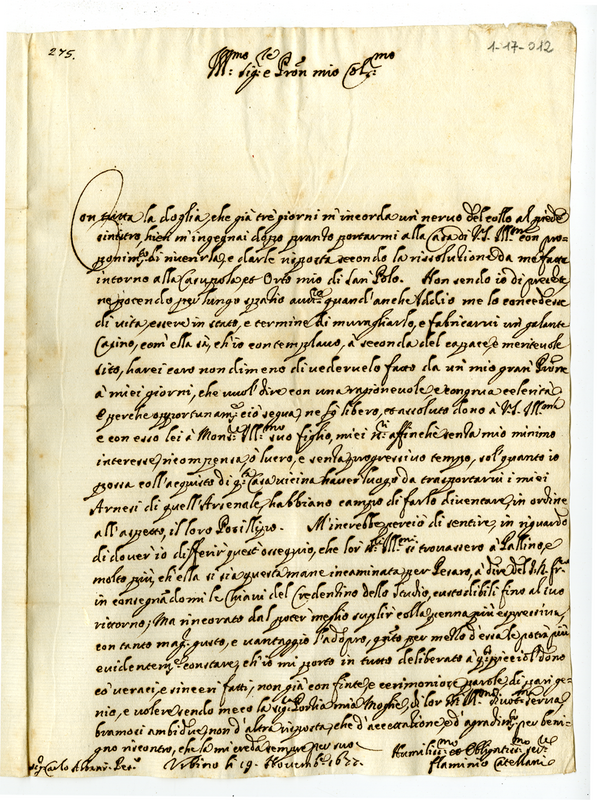 275.
1-17-012
Ill.mo Sig.re e Pron mio Col.mo
Con tutta la doglia, che già trè giorni m'incorda un nervo del collo al piede
sinistro, hieri m'ingegnai dopo pranto portarmi alla Casa di V.S. Ill.ma con pro-
ponim.to di riverirla, e darle risposta secondo la rissolutione da me fatta
intorno alla Casupola, et Orto mio di San Polo. Non sendo io di presente
ne potendo per lungo spatio quand'anche Iddio me lo concedesse
di vita, essere in stato, e termine di muragliarlo, e fabricarvi un galante
Casino, com'ella sà, ch'io contemplavo, à seconda del capace, e meritevole
sito, harei caro non di meno di vedervelo fatto da un mio gran Prone
à miei giorni, che vuol dire con una ragionevole, e congrua celerità
E perche opportunam.te ciò segua, ne fò libero, et assoluto dono à V.S. Ill.ma
e con esso lei à Mons.re Ill.mo suo figlio, miei affinche senta mio minimo
interesse, ricompensa, ò lucro, e senta progressivo tempo, sol quanto io
possa coll'acquisto di Casa vicina haver luogo da trasportarvi i miei
Arnesi di quell'Arsenale, habbiano campo di farlo diventare, in ordine
all'aspetto, il loro Posillipo. M'increbbe perciò di sentire, in riguardo
di dover io differir quest'ossequio, che lor Ill.mi si trovassero à Pallino, e
molto più, ch'ella si sia questa mane incaminata per Pesaro, à dire del
in consegnandomi le Chiavi del Credentino dello Studio, custodibili fino al suo
ritorno; Ma rincorato dal poter meglio suplir colla penna più espressiva,
con tanto mag.r gusto, e vantaggio l'adopro, q.nto per mezzo d'essa le potrà più
evidentem.te constare, ch'io mi porto in tutto deliberato à picciol dono
cò veraci, e sinceri fatti, non già con finte, e cerimoniose parole di pari ge-
nio, e volere sendo meco la Sig.ra Portia mia Moglie, di lor Ill.me divot. serva,
bramosi ambidue, non d'altra risposta, che d'accettatione, e d'agradim.to per beni-
gno riscontro, che la mi creda sempre per suo
Sig. Carlo Albani Pes.o Vrbino li 19. Novemb.e 1677. Humiliss.mo et Obligatiss.mo
Flaminio Catellani